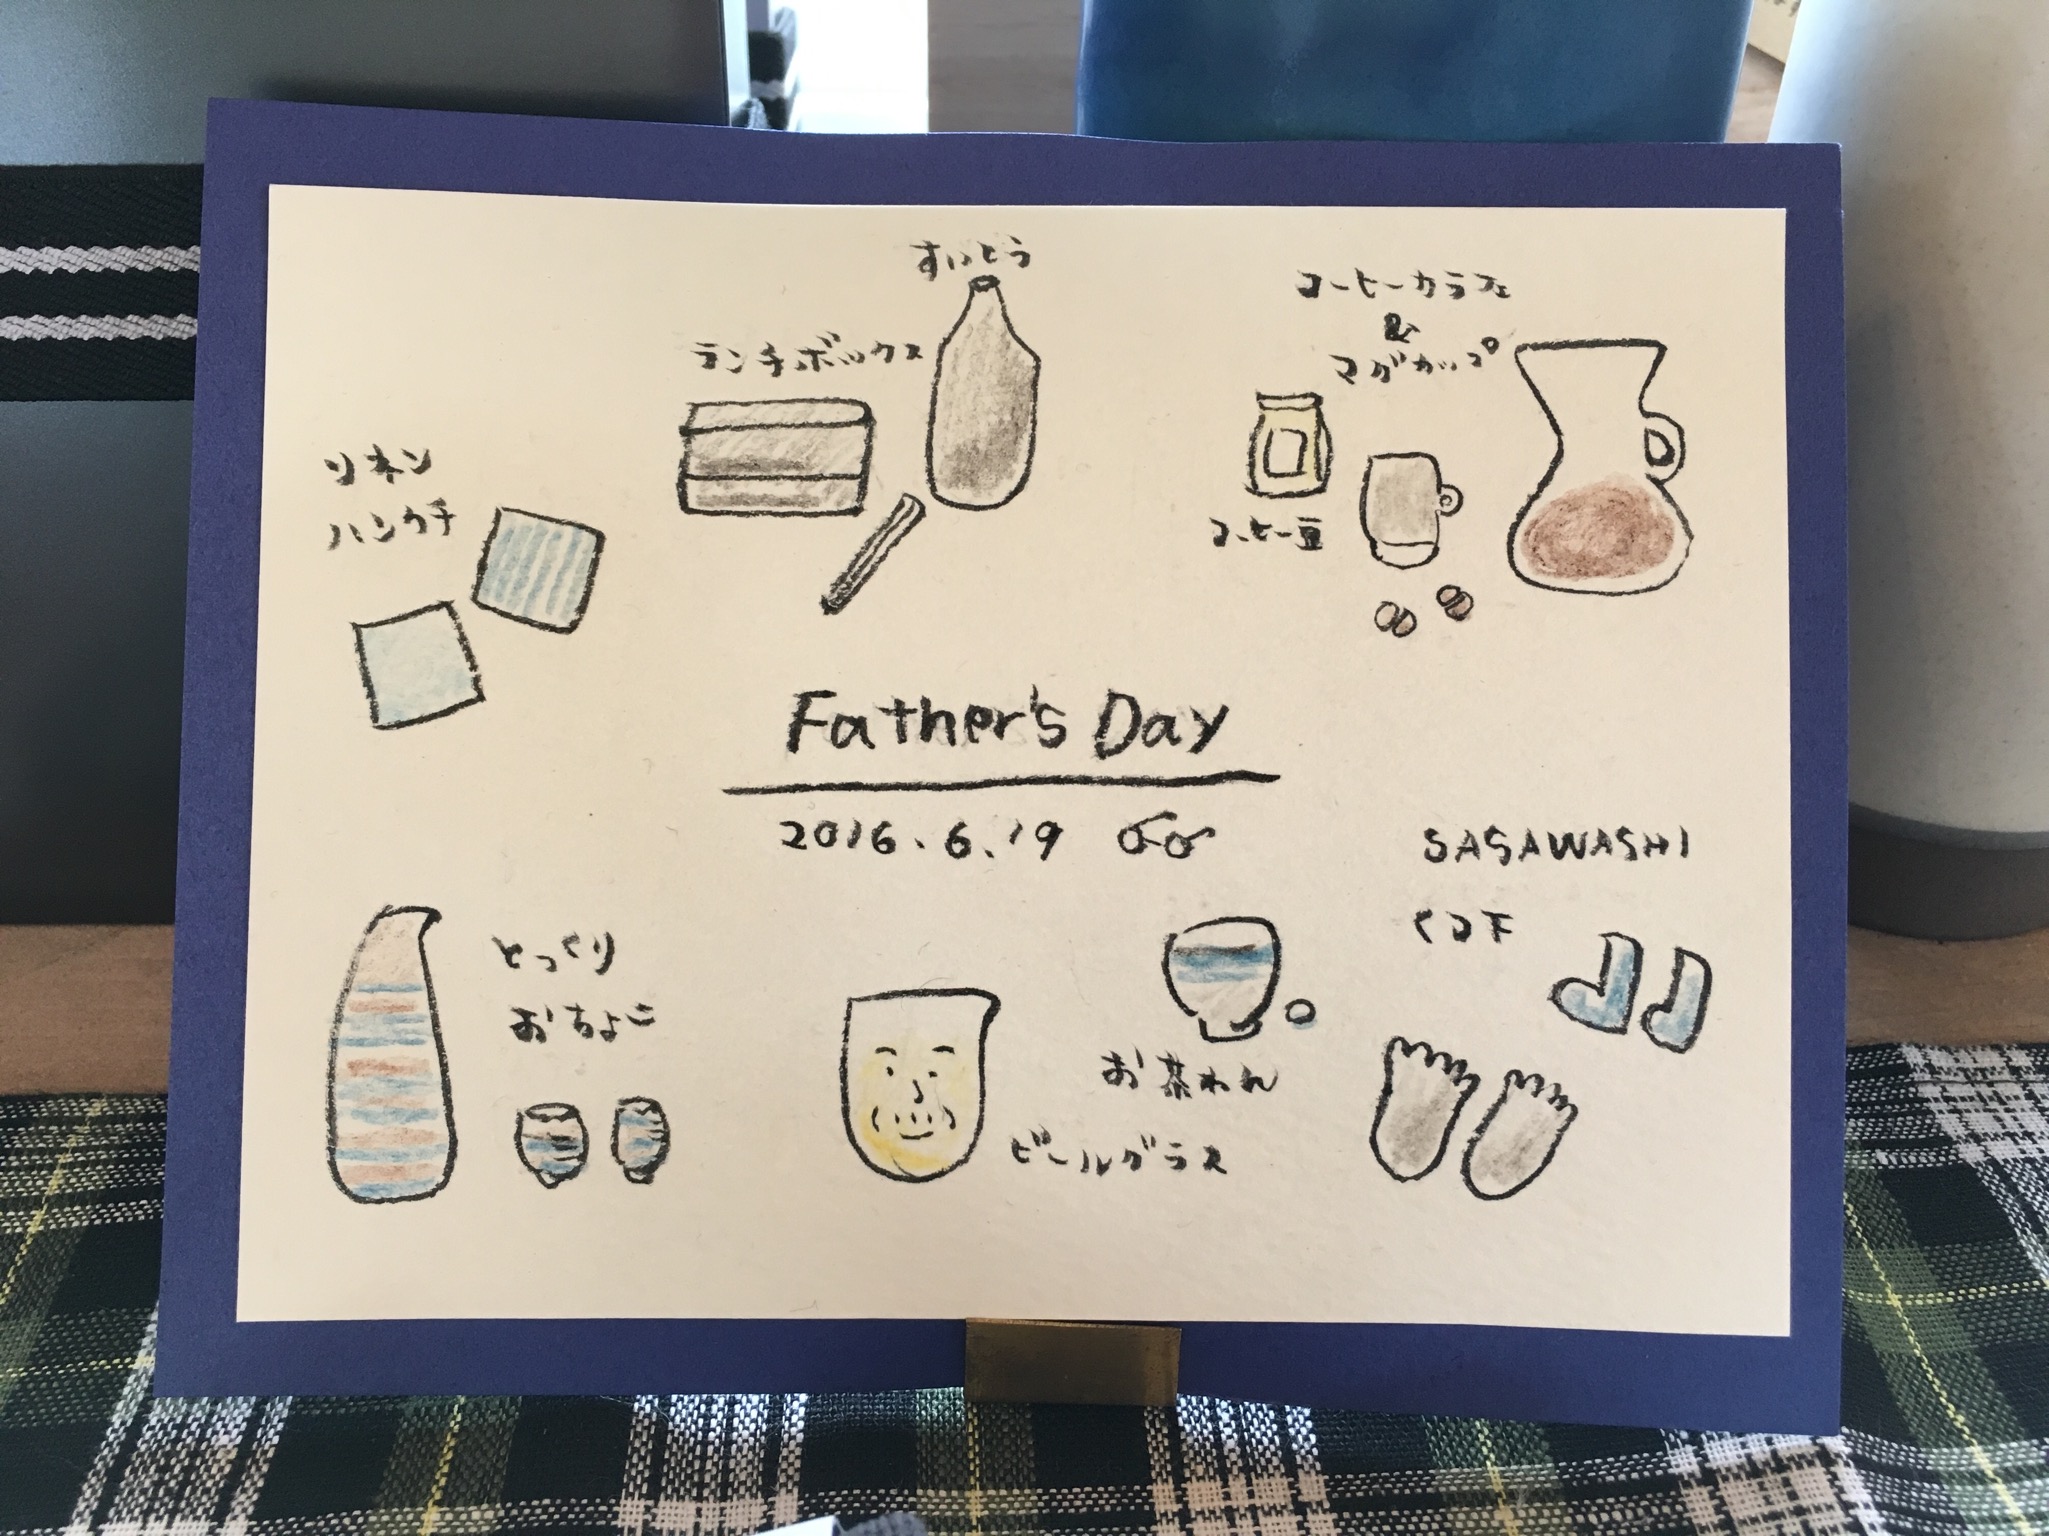 すいとう
ランチボックス
コーヒーカラフェ
&
マグカップ
コーヒー豆
リネン
ハンカチ
Father's Day
2016.6.19
SASAWASHI
くつ下
とっくり
おちょこ
お茶わん
ビールグラス